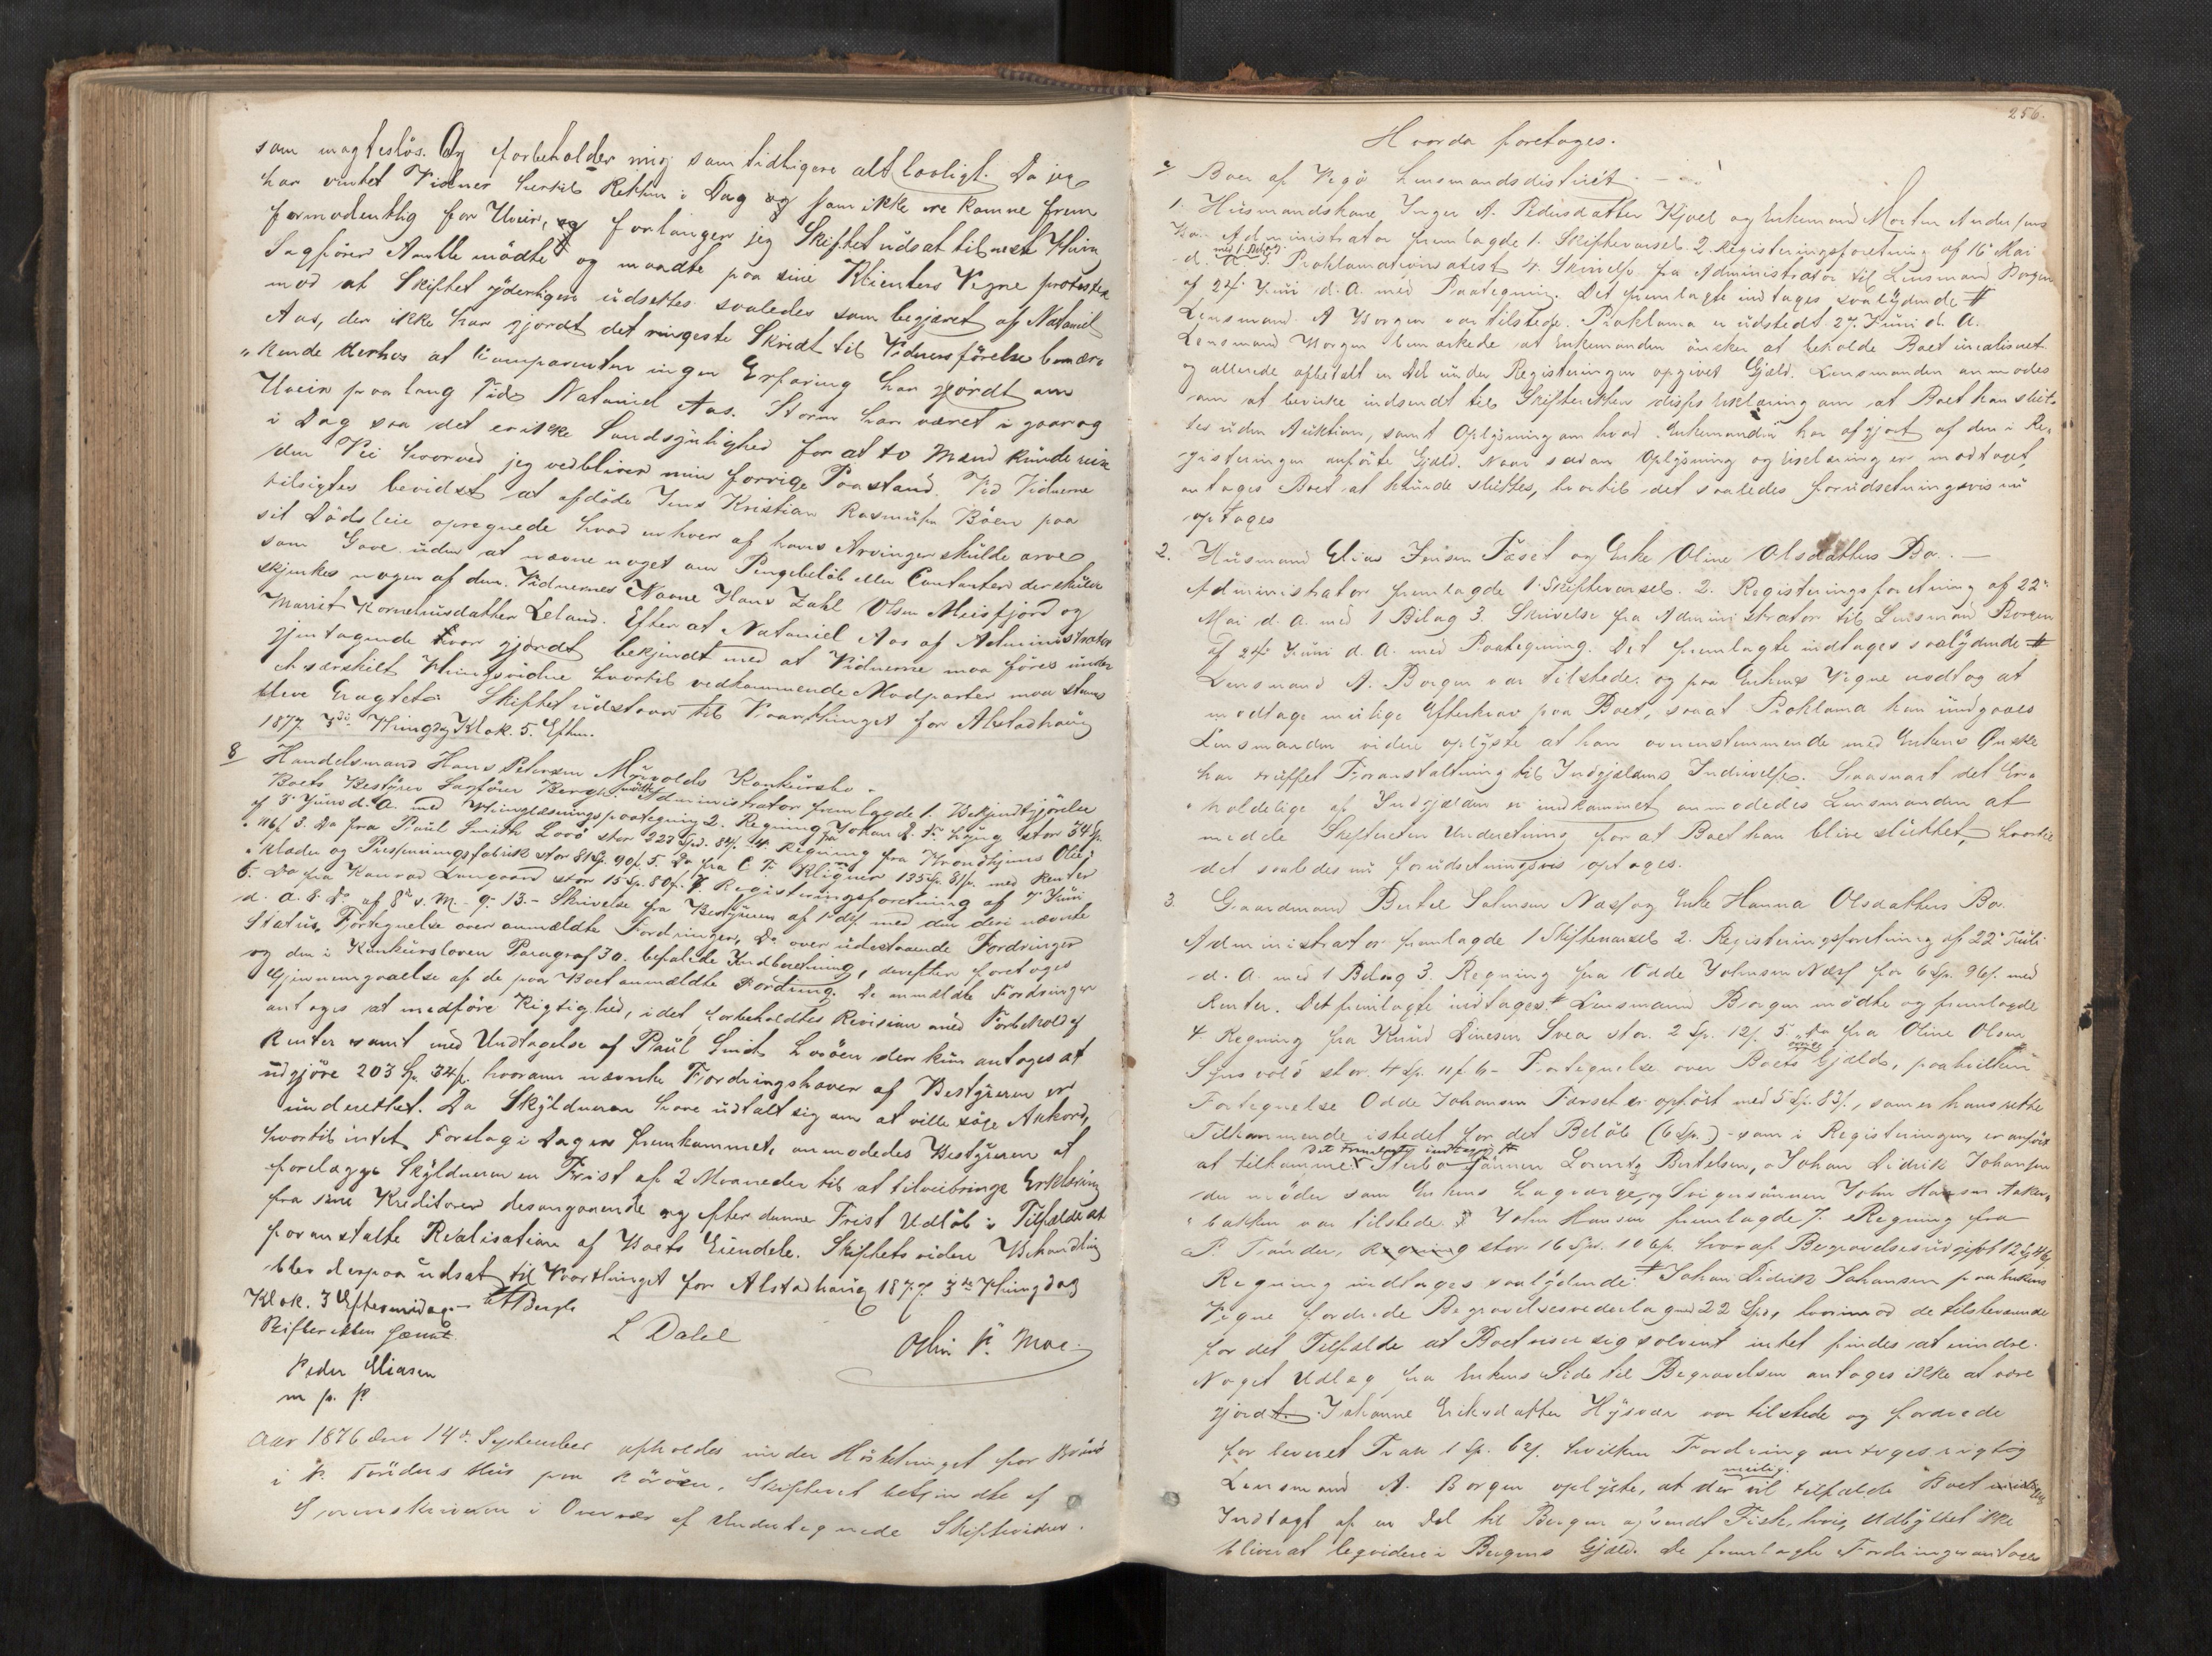 som magtesløs. Og forbeholder mig som tidligere alt lovligt. Da jeg
har ventet Vidner hertil Retten i Dag og som ikke ere komne frem
formodentlig for Uveir, og forlanger jeg Skiftet udsat til næste Thing
Sagfører mødte og maatte paa sine Klienters Vegne protestere
mod at Skiftet yderligere udsættes saaledes som begjæret af Nataniel
Aas, der ikke har gjordt det ringeste Skridt til Vidners førelse bemær-
"kende derhos at Comparenten ingen Erfaring har gjordt om
Uveir paa lang Tid Nataniel Aas. Storm har været i gaar og
i Dag saa det er ikke Sandsynlighed for at to Mænd kunde reise
den Vei hvorved jeg vedbliver min forrige Paastand. Ved Vidnerne
tilsigtes bevidst at afdøde Jens Kristian Rasmusen Bøen paa
sit Dødsleie opregnede hvad enhver af hans Arvinger skulde arve
som Gave uden at nævne noget om Pengebeløb eller Contanter der skulde
skjenkes nogen af dem. Vidnernes Navne Hans Zahl Olsen Meisfjord og
Marrit Korneliusdatter Leland. Efter at Nataniel Aas af Administrator
gjentagende var gjordt bekjendt med at Vidnerne maa føres under
et særskilt Thingsvidne hvortil vedkommende Modparter maa stevnes
bleve Skiftet udstaar til Vaarthinget for Alstadhaug
1877 3die Thingdag Klok. 5. Eftm.
8 Handelsmand Hans Petersen Konkursbo.
Boets Bestyrer Sagfører Bergh mødte. Administrator fremlagde 1. Bekjendtgjørelse
af 3. Juni d. A. med Thinglæsningspaategning 2. Regning fra Johan L. stor 34 Sp.
116 s 3. Do fra Paul Smith stor 223 Spd. 84 s. 4. Regning fra Trondhjems Olie-
"klæder og Presenningsfabrik stor 81 Sp. 90 s. 5. Do fra C. F. Klignen 135 Sp. 81 s. med Renter
6. Do fra Konrad Langaard stor 15 Sp. 80 s. 7. Registeringsforretning af 7 Juni
d. A. 8. Do af 8de s. M. 9-13.- Skrivelse fra Bestyreren af 1 ds. med den deri nævnte
Status, Fortegnelse over anmældte Fordringer, Do over udestaaende Fordringer
og den i Konkursloven Paragraf 30. befalede Indberetning, derefter foretoges
Gjennemgaaelse af de paa Boet anmældte Fordring. De anmældte Fordringer
antoges at medføre Rigtighed, idet forbeholdtes Revision med Forbehold af
Renter samt med Undtagelse af Paul Smith der kun antoges at
udgjøre 203 Sp. 34 s. hvorom nævnte Fordringshaver af Bestyreren er
underettet. Da Skyldneren have udtalt sig om at ville søge Akkord,
hvortil intet Forslag i Dag er fremkommet, anmodedes Bestyreren at
forelægge Skyldneren en Frist af 2 Maaneder til at tilveiebringe Erklæring
fra sine Kreditorer desangaaende og efter denne Frist Udløb i Tilfælde at
foranstalte Realisation af Boets Eiendele. Skiftets videre Behandling
blev derpaa udsat til Vaarthinget for Alstadhaug 1877 3die Thingdag
Klok. 3 Eftermidag. Bergh
Skifteretten hævet.
L Dahl
P. Moe.
Peder Eliasen
m p. p.
Aar 1876 den 14de September afholdes under Høstethinget for Brønø
i P. Tønders Hus paa Rørøen, Skifteret betjendte af
Sorenskriveren i Overvær af Undertegnede Skiftevidner.
256.
Hvorda foretoges.
Boer af Vegø Lensmandsdistriet.
1. Husmandskone Inger A. Pedersdatter Kjøel og Enkemand Morten Andersens
Bo. Administrator fremlagde 1. Skiftevarsel. 2. Registeringsforetning af 16 Mai
med 1 Bilag
d. A. 3. Proklamationsatest 4. Skrivelse fra Administrator til Lensmand Borgen
af 24. Juni d. A. med Paategning. Det fremlagte indtages saalydende #
Lensmand A Borgen var tilstede. Proklama er udstedt 27. Juni d. A.
Lensmand Borgen bemærkede at Enkemanden ønsker at beholde Boet urealiseret
og allerede afbetalt en Del under Registeringen opgivet Gjæld. Lensmanden anmodes
om at bevirke indsendt til Skifteretten disses Erklæring om at Boet kan slut-
tes uden Auktion, samt Oplysning om hvad Enkemanden har afgjort af den i Re-
gisteringen anførte Gjæld. Naar sadan Oplysning og Erklæring er modtaget,
antages Boet at kunde sluttes, hvortil det saaledes forudsetningsvis nu
optages
2. Husmand Elias Jensen Færset og Enke Oline Olsdatters Bo. —
Administrator fremlagde 1. Skiftevarsel. 2. Registeringsforetning af 22.
Mai d. A. med 1 Bilag 3. Skrivelse fra Administrator til Lensmand Borgen
af 24 Juni d. A. med Paategning. Det fremlagte indtages saalydende #
Lensmand A. Borgen var tilstede og paa Enkens Vegne vedtog at
modtage mulige Efterkrav paa Boet, saaat Proklama kan undgaaes
Lensmanden videre oplyste at han overenstemmende med Enkens Ønske
har truffet Foranstaltning til Indgjældens Indrivelse. Saasnart det Er-
"holdelige af Indgjælden er indkommet anmodedes Lensmanden at
meddele Skifteretten Underetning for at Boet kan blive sluttet, hvortil
det saaledes nu forudsetningsvis optages.
3. Gaardmand Bertel Salmsen Næss og Enke Hanna Olsdatters Bo.
Administrator fremlagde 1 Skiftevarsel 2. Registeringsforetning af 22 Juli
d. A. med 1 Bilag 3. Regning fra Odde Johnsen Næss for 6 Sp. 96 s. med
Renter. Det fremlagte indtages # Lensmand Borgen mødte og fremlagde
4. Regning fra Knud Dinesen Svea stor. 2 Sp. 12 s. 5 Do fra Oline Olsen
øvrige
stor. 4 Sp. 11 s 6- Fortegnelse over Boets Gjæld, paa hvilken
Fortegnelse Odde Johansen Færset er opført med 5 Sp. 83 s., som er hans rette
Tilkommende istedet for det Beløb (6 Sp.) - som i Registeringen, er anført
Det Fremlagte indtages #
at tilkomme. Sterbosønnen Lorentz Bertelsen, Johan Didrik Johansen
der møder som Enkens Lagværge, og Svigersønnen John Hansen Aaker-
"bakken var tilstede. John Hansen fremlagde 7. Regning fra
P. Tønder, stor 16 Spd. 106 s. hvoraf Begravelsesudgift 12 Sp 46 s
Regning indtages saalydende: # Johan Didrik Johansen paa Enkens
Vegne fordrede Begravelsesvederlag med 22 Spd, hvorimod de tilstevænde
for det Tilfælde at Boet viser sig solvent intet findes at erindre.
Noget Udlæg fra Enkens Side til Begravelsen antoges ikke at være
gjordt. Johanne Eriksdatter Hysvær var tilstede og fordrede
for leveret Tran 1 Sp. 62 s. hvilken Fordring antoges rigtig
muelig.
Lensmand A. Borgen oplyste, at der vil tilfalde Boet
Indtægt af en Del til Bergen afsendt Fisk, hvis Udbyttet ikke
bliver at leqvidere i Bergens Gjæld. De fremlagte Fordringer antoges